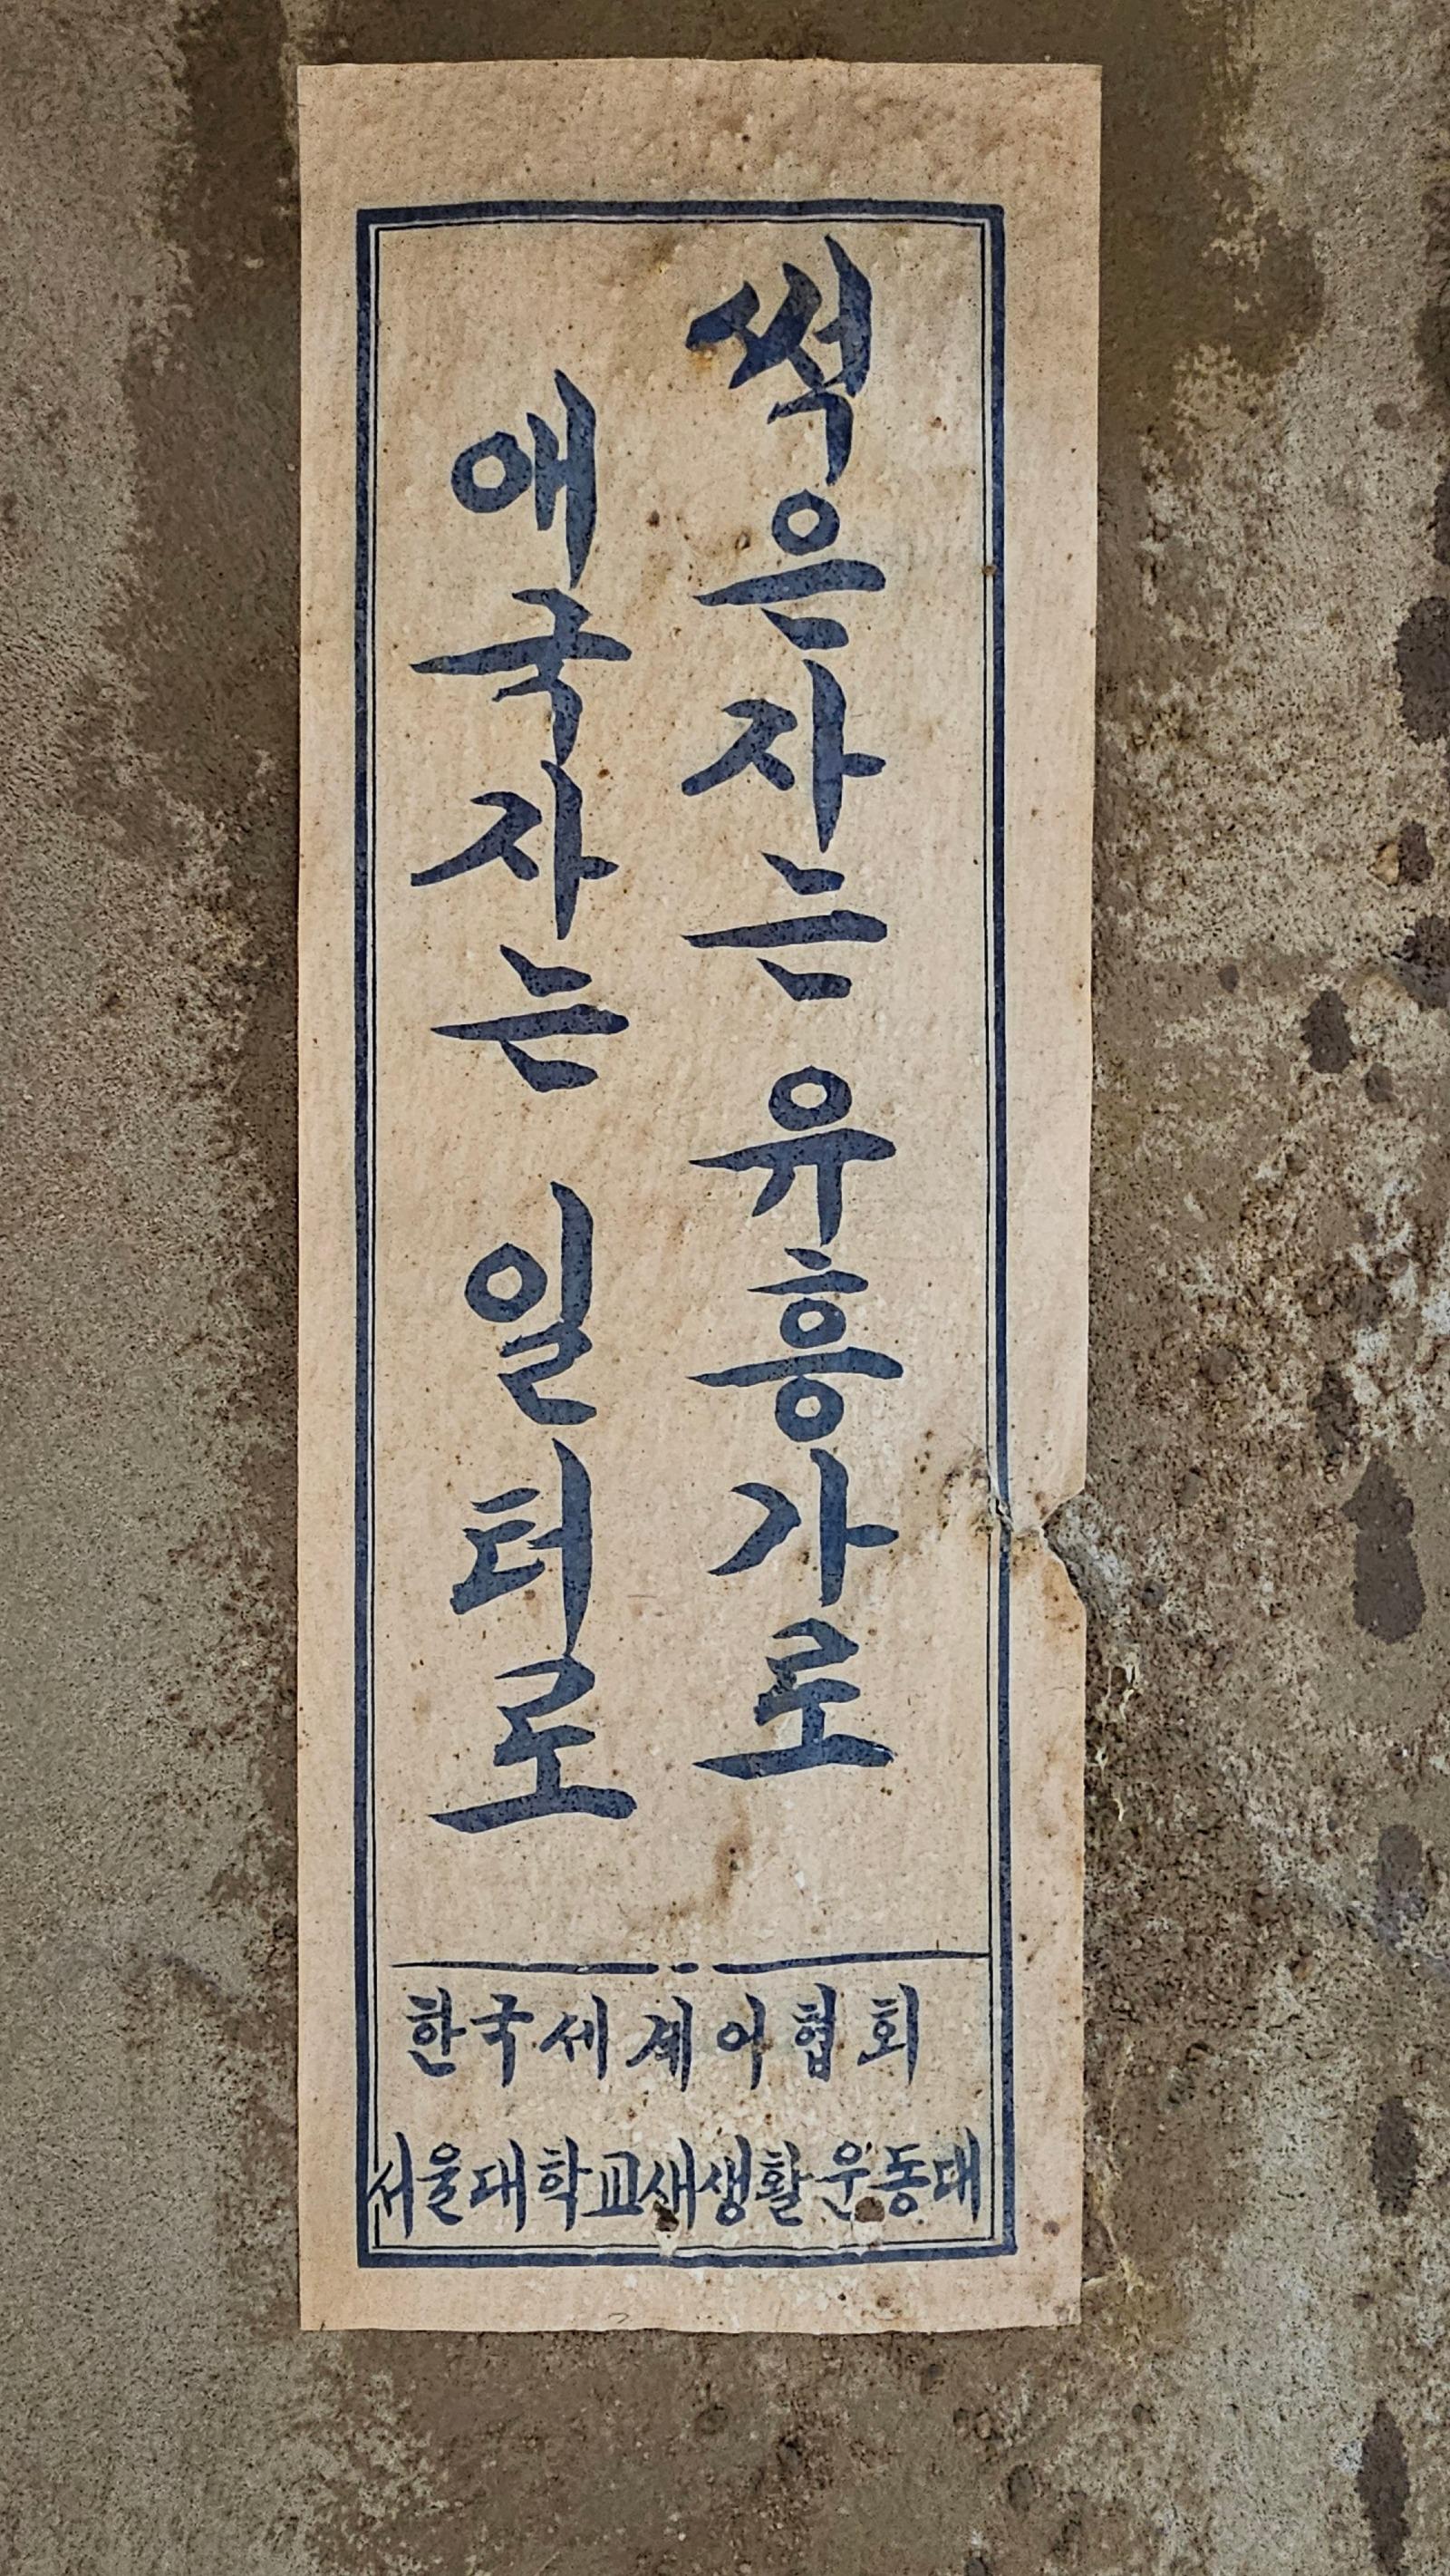 썩은자는 유흥가로
애국자는 일터로
한국세계어협회
서울대학교새생활운동대